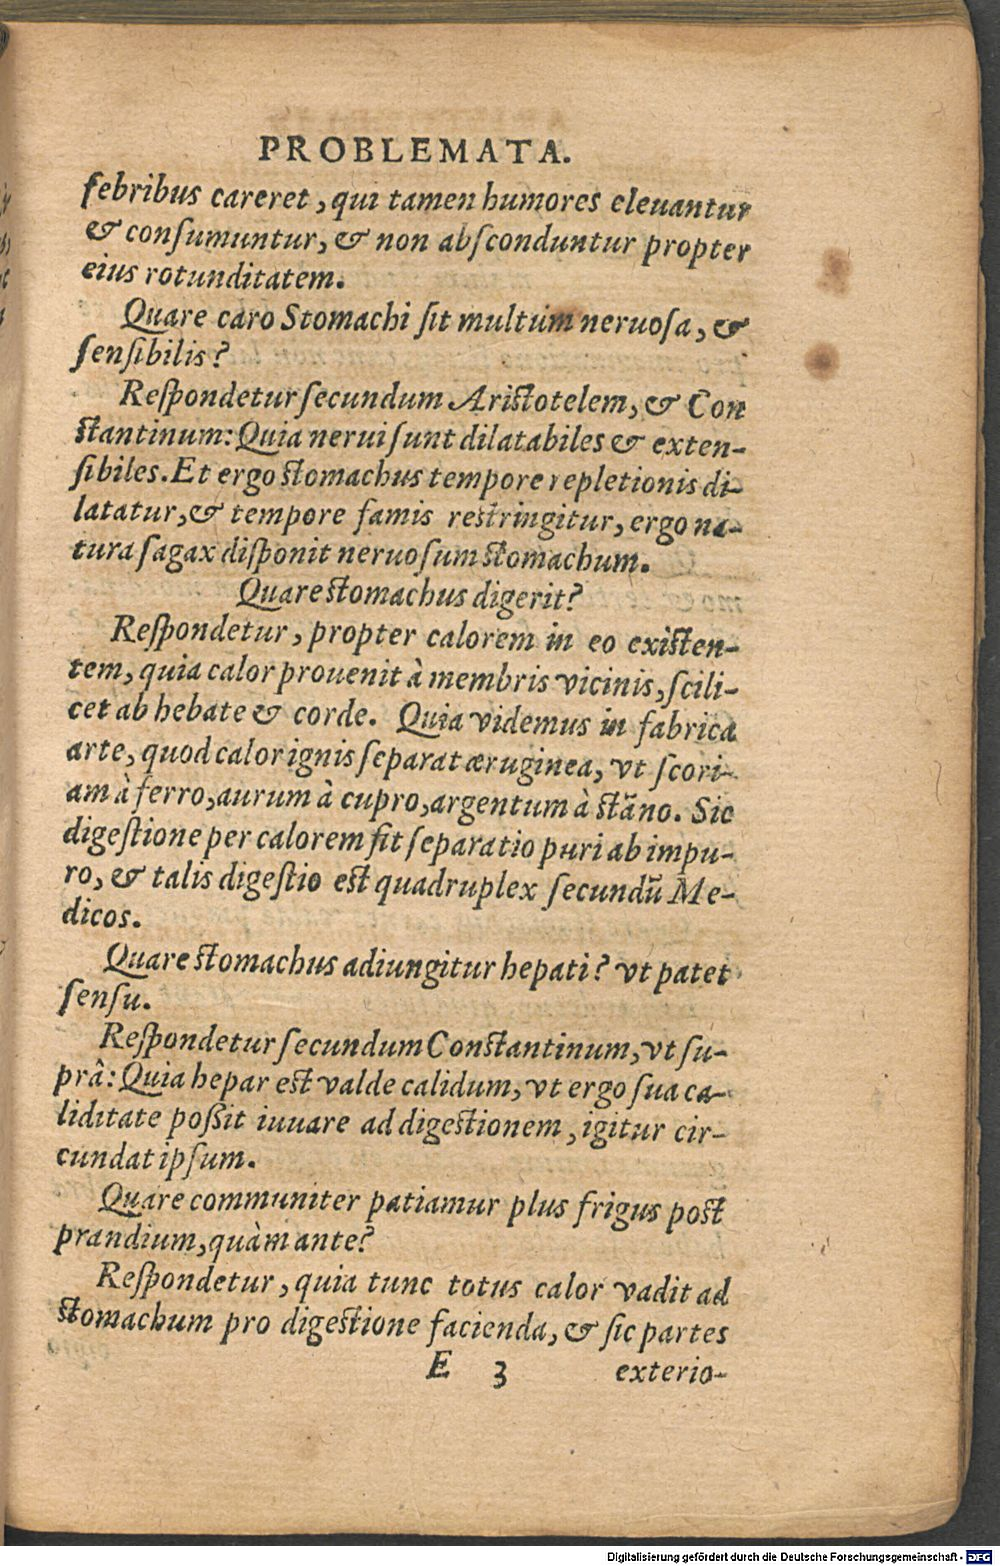 PROBLEMATA.
febribus careret, qui tamen humores eleuantur
& consumuntur, & non absconduntur propter
eius rotunditatem.
Quare caro Stomachi sit multum neruosa, &
sensibilis?
Respondetur secundum Aristotelem, & Con
stantinum: Quia nerui sunt dilatabiles & exten-
sibiles. Et ergo stomachus tempore repletionis di-
latatur, & tempore famis restringitur, ergo na-
tura sagax disponit neruosum stomachum.
Quare stomachus digerit?
Respondetur, propter calorem in eo existen-
tem, quia calor prouenit à membris vicinis, scili-
cet ab hebate & corde. Quia videmus in fabrica
arte, quod calor ignis separat æruginea, vt scori-
am à ferro, aurum à cupro, argentum à stāno. Sic
digestione per calorem fit separatio puri ab impu-
ro, & talis digestio est quadruplex secundū Me-
dicos.
Quare stomachus adiungitur hepati? vt patet
sensu.
Respondetur secundum Constantinum, vt su-
prâ: Quia hepar est valde calidum, vt ergo sua ca-
liditate poßit iuuare ad digestionem, igitur cir-
cundat ipsum.
Quare communiter patiamur plus frigus post
prandium, quàm ante?
Respondetur, quia tunc totus calor vadit ad
stomachum pro digestione facienda, & sic partes
E 3 exterio-
Digitalisierung gefördert durch die Deutsche Forschungsgemeinschaft - DFG